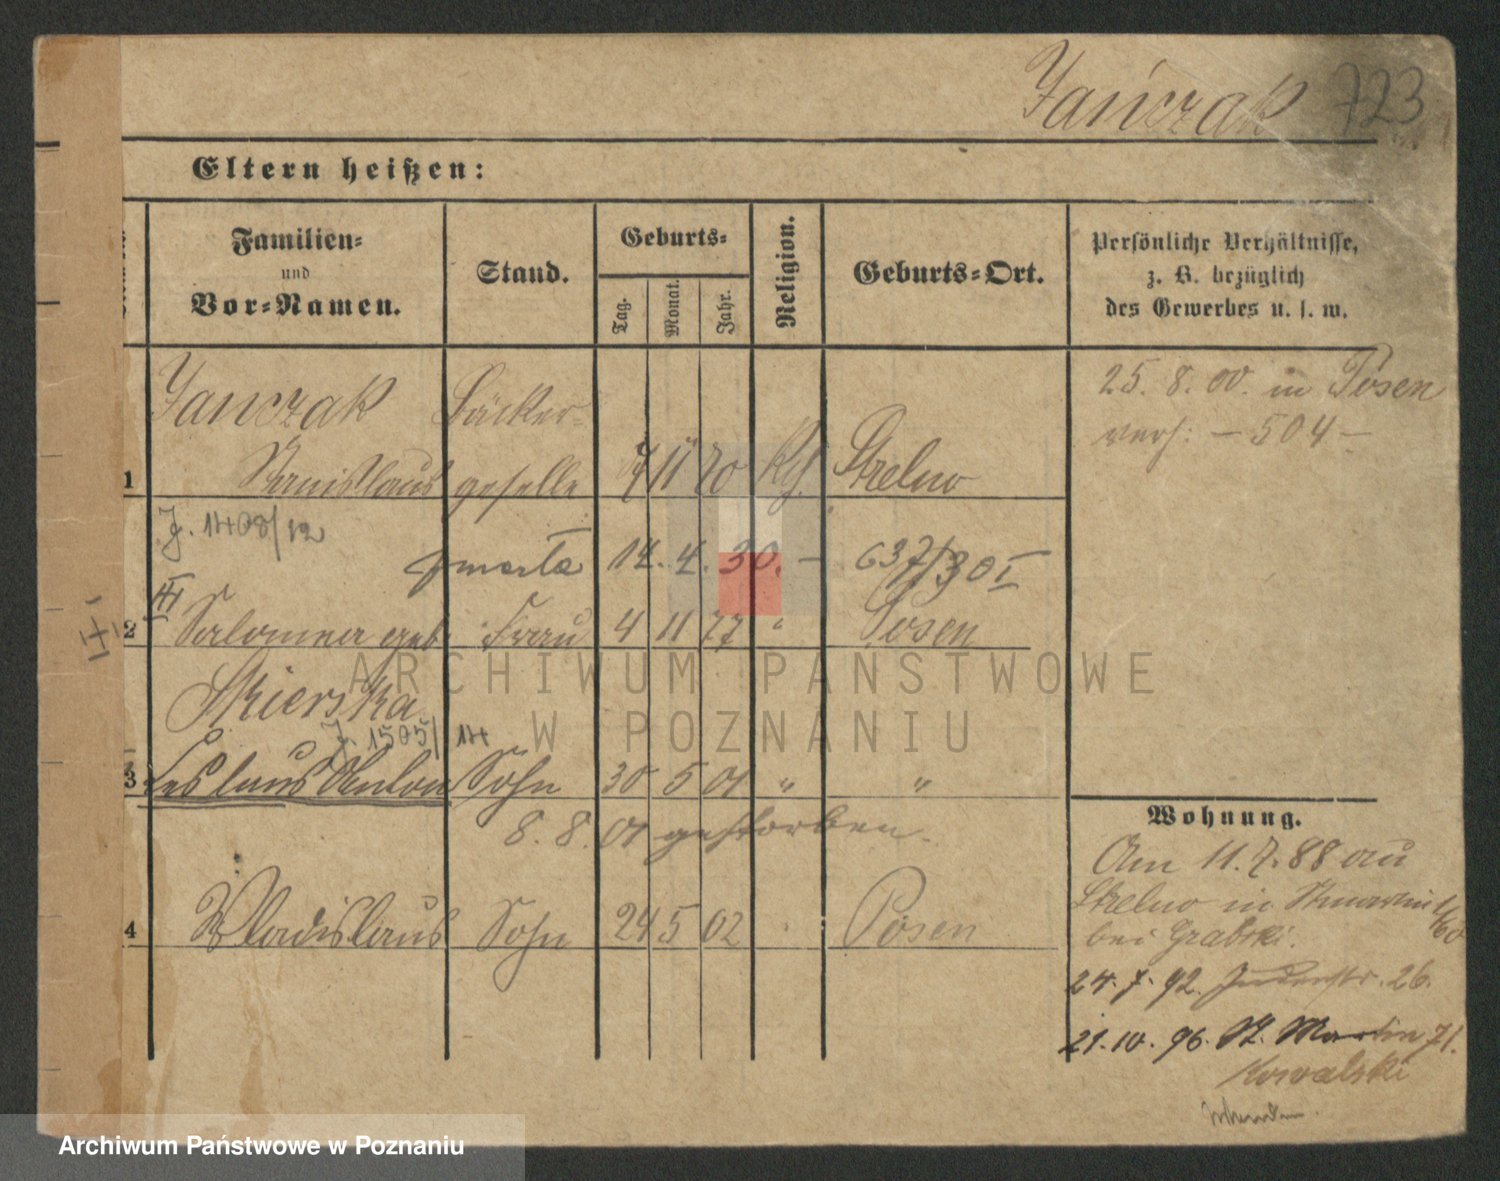 Jańczak 723
Eltern heißen:
Familien-
und
Vor-Namen.
Stand.
Geburts-
Tag.
Monat.
Jahr.
Religion.
Geburts-Ort.
Persönliche Verhältnisse,
z. B. bezüglich
des Gewerbes u. s. w.
Janczak Bäcker-
1 Stanislaus geselle 7 11 70 Kth. Strelno
25. 8. 00. in Posen
verh: - 504 -
J. 1408/12
14. 4. 30. - 637/30 I
2 Salomea geb. Frau 4 11 77 " Posen
Skierska
J. 1505/14
3 Leslaus Anton Sohn 30 5 01 " "
8. 8. 01 gestorben.
4 Wladislaus Sohn 24 5 02 Posen
Wohnung.
Am 11. 7. 88 au
Strelno in
bei Grabski.
24. 7. 92. 26.
21. 10. 96. St. Martin 71.
Kowalski
ARCHIWUM PAŃSTWOWE
W POZNANIU
Archiwum Państwowe w Poznaniu